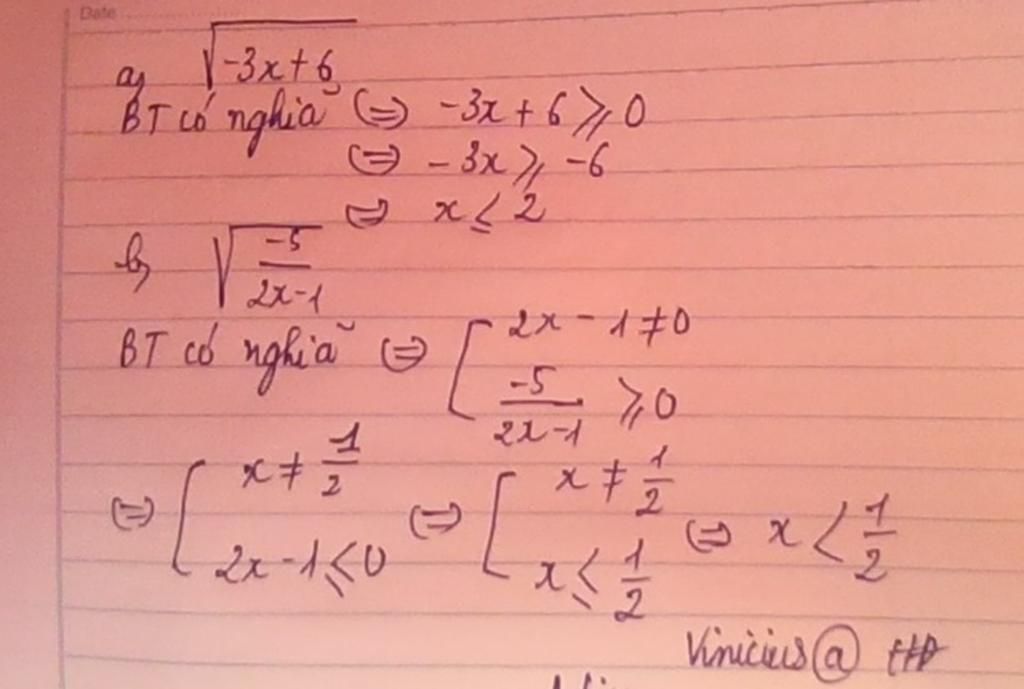 Date
a) √(-3x+6)
BT có nghĩa (=) -3x + 6 ⩾ 0
(=) -3x ⩾ -6
(=) x ≤ 2
b) √(-5/(2x-1))
BT có nghĩa (=) [ 2x - 1 ≠ 0
-5/(2x-1) ⩾ 0
(=) [ x ≠ 1/2 (=) [ x ≠ 1/2 (=) x < 1/2
2x - 1 ⩽ 0 x ⩽ 1/2
Vinicius@